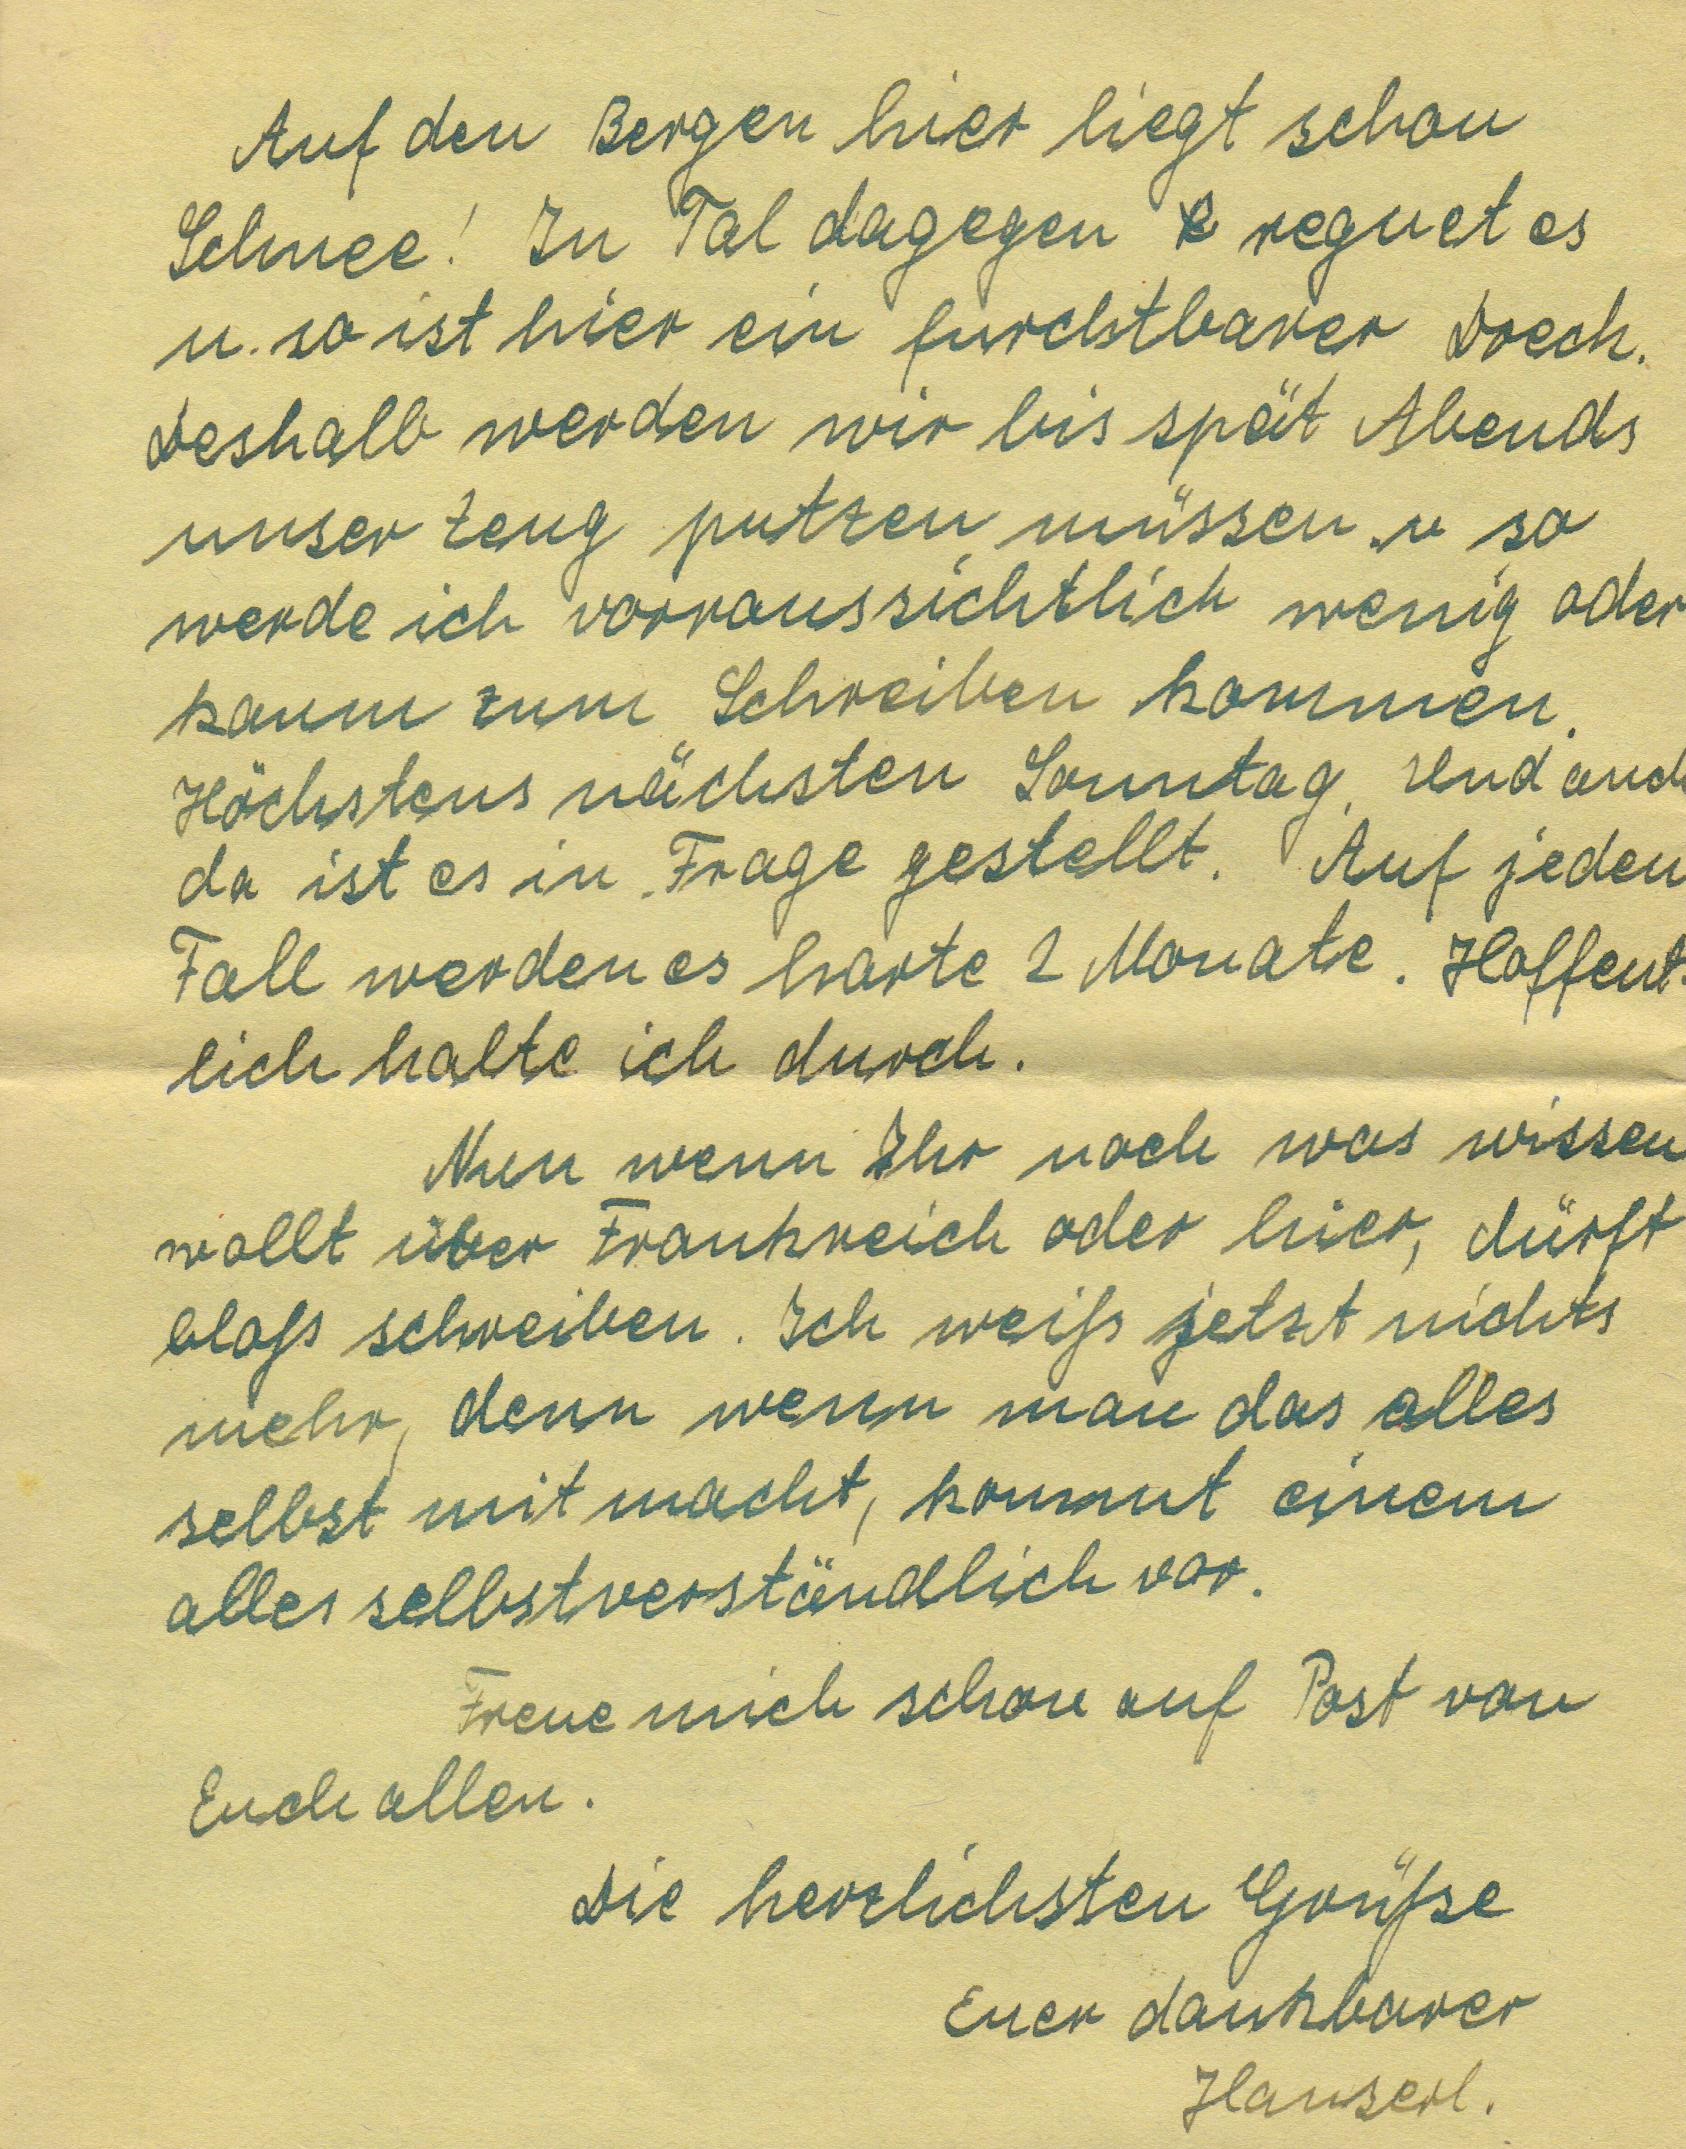 Auf den Bergen hier liegt schon
Schnee! In Tal dagegen regnet es
u. so ist hier ein furchtbarer Dreck.
Deshalb werden wir bis spät Abends
unser Zeug putzen müssen u so
werde ich vorraussichtlich wenig oder
kaum zum Schreiben kommen.
Höchstens nächsten Sonntag. Und auch
da ist es in Frage gestellt. Auf jeden
Fall werden es harte 2 Monate. Hoffent-
lich halte ich durch.
Nun wenn Ihr noch was wissen
wollt über Frankreich oder hier, dürft
bloß schreiben. Ich weiß jetzt nichts
mehr, denn wenn man das alles
selbst mit macht, kommt einem
alles selbstverständlich vor.
Freue mich schon auf Post von
Euch allen.
Die herzlichsten Grüße
Euer dankbarer
Hanserl.